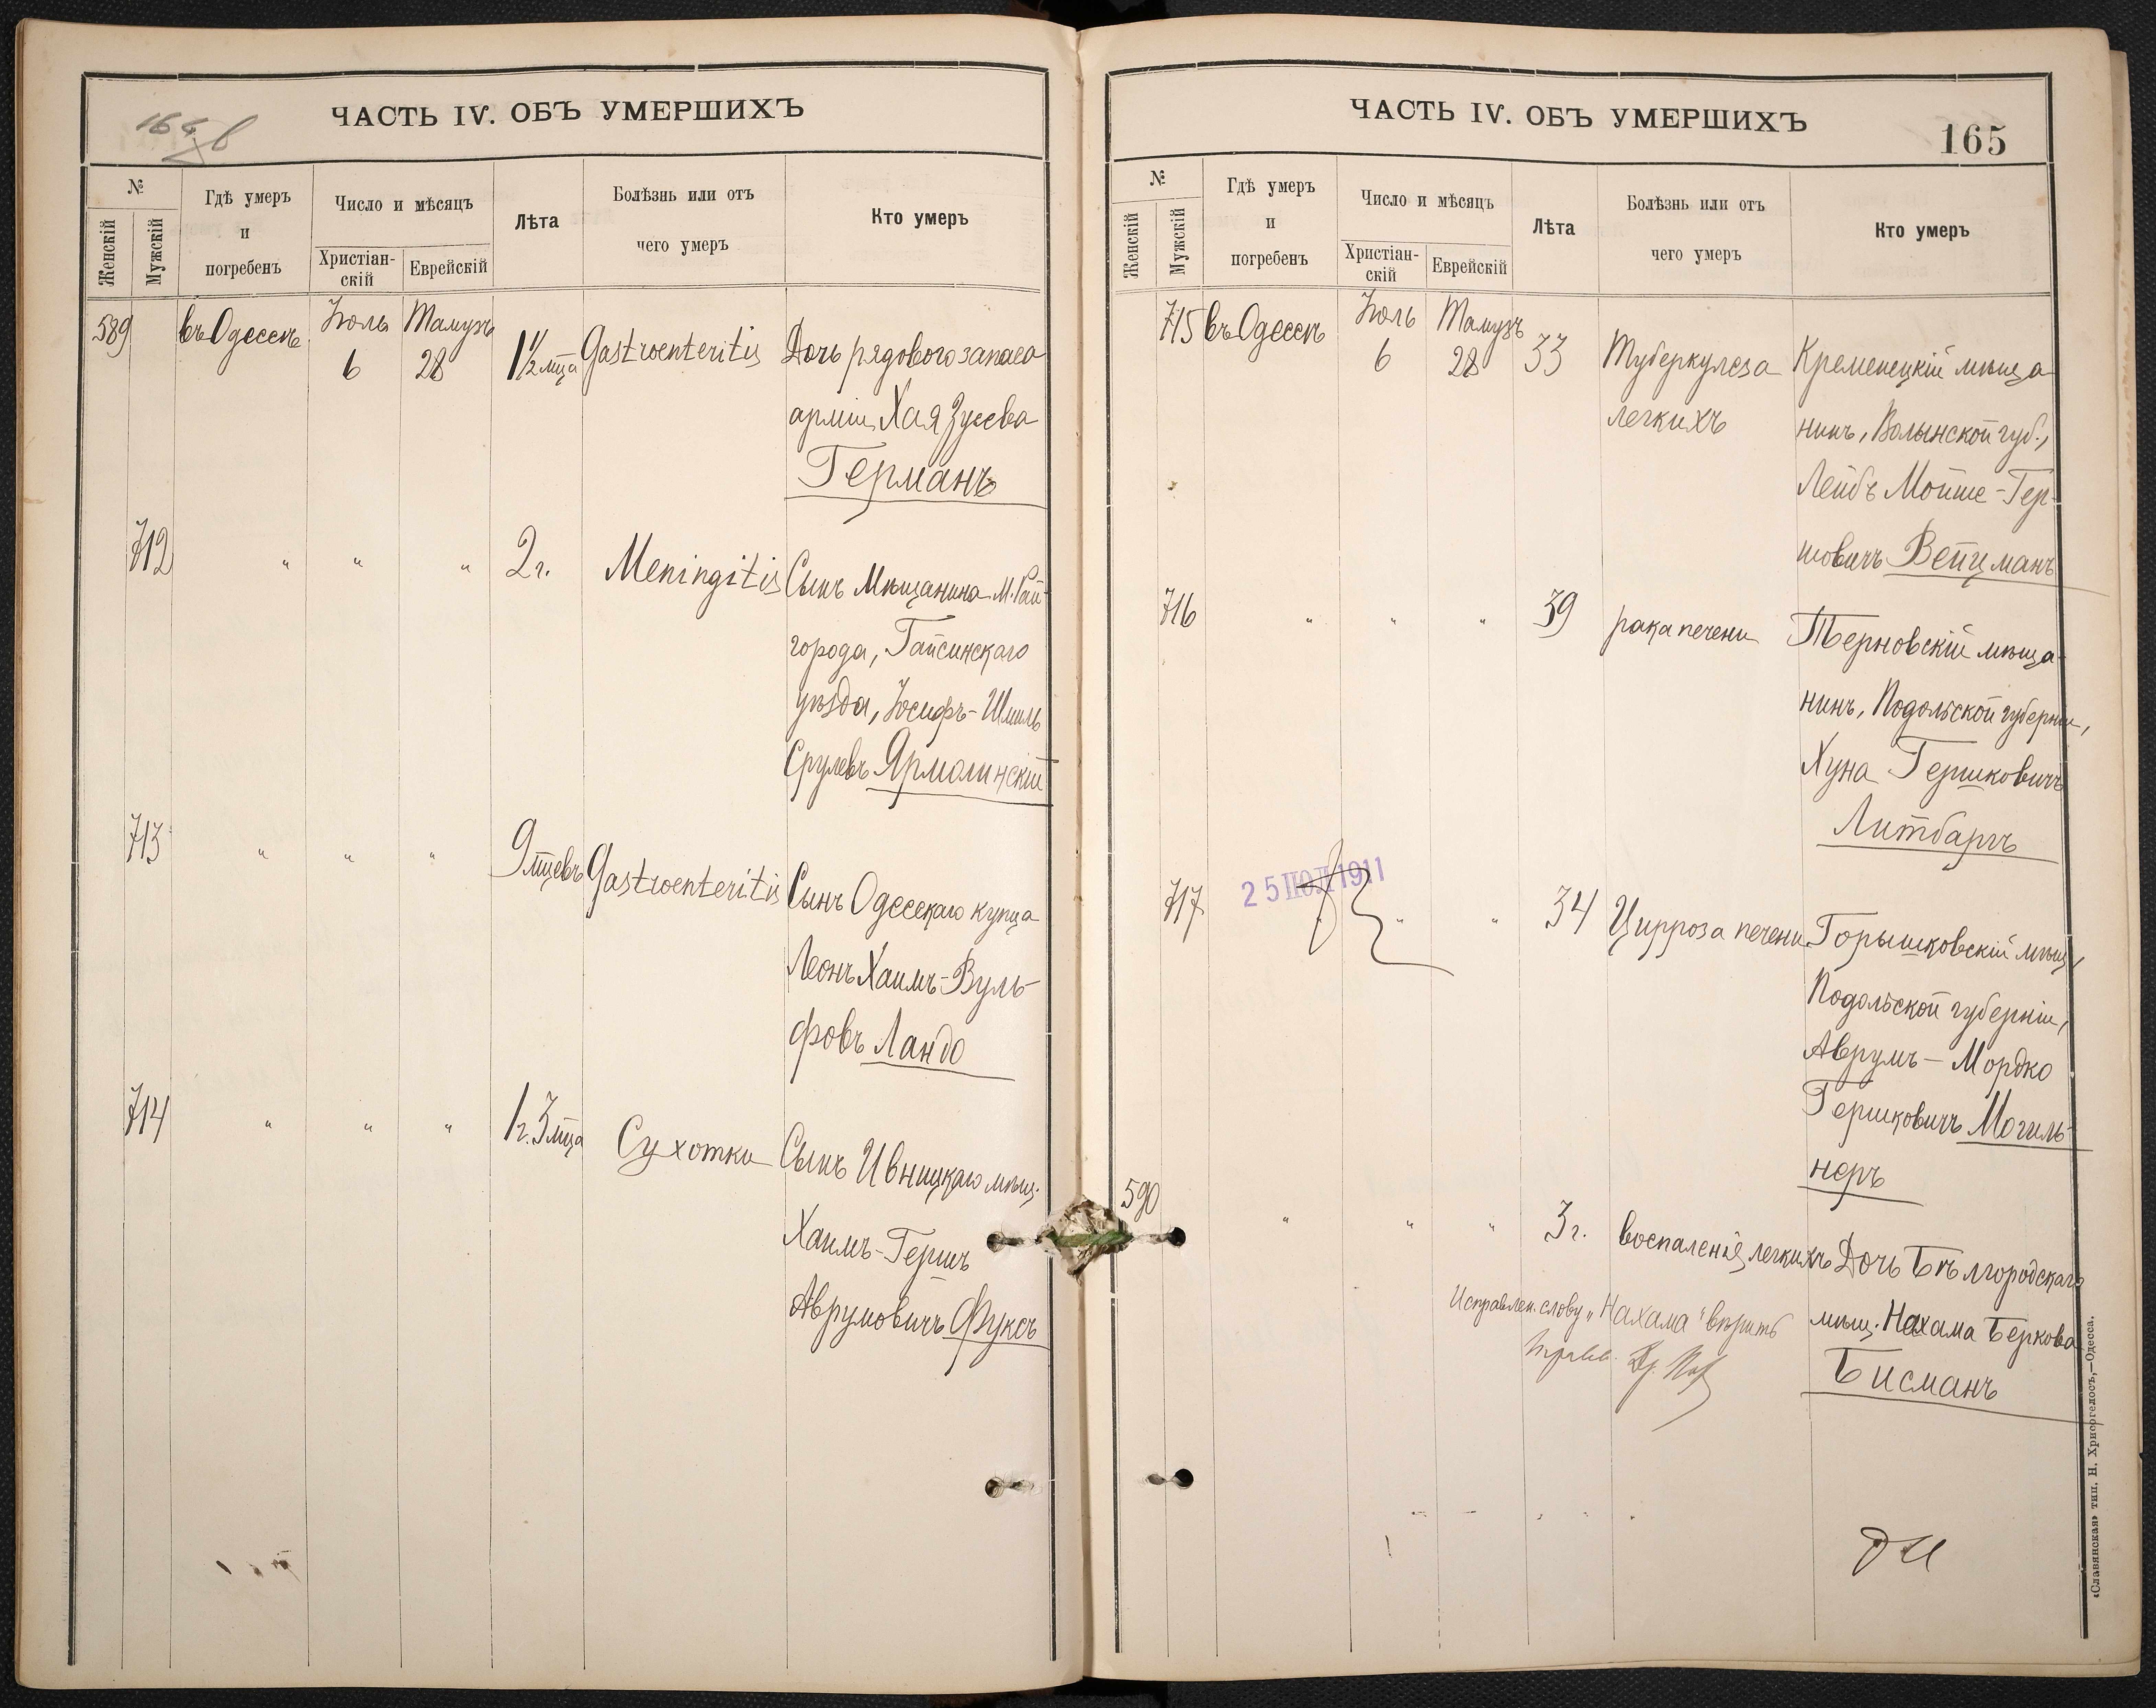 ЧАСТЬ IV. ОБЪ УМЕРШИХЪ
№
Женскій
Мужскій
Гдѣ умеръ
и
погребенъ
Число и мѣсяцъ
Христіан-
скій
Еврейскій
Лѣта
Болѣзнь или отъ
чего умеръ
Кто умеръ
589 въ Одессѣ Іюль 6 Тамузъ 28 1 1/2 мца Gastroenteritis Дочь рядового запаса
арміи Хая Зусева
Германъ
712 " " " 2 г. Meningitis Сынъ Мѣщанина м. Рай-
города, Гайсинскаго
уѣзда, Іосифъ-Шмиль
Срулевъ Ярмолинскій
713 " " " 9 мцевъ Gastroenteritis Сынъ Одесскаго купца
Леонъ Хаимъ-Вуль-
фовъ Ландо
714 " " " 1 г. 3 мца Сухотки Сынъ Ивницкаго мѣщ.
Хаимъ-Гершъ
Аврумовичъ Фуксъ
ЧАСТЬ IV. ОБЪ УМЕРШИХЪ
165
№
Женскій
Мужскій
Гдѣ умеръ
и
погребенъ
Число и мѣсяцъ
Христіан-
скій
Еврейскій
Лѣта
Болѣзнь или отъ
чего умеръ
Кто умеръ
715 въ Одессѣ Іюль 6 Тамузъ 28 33 Туберкулеза Кременецкій мѣща-
легкихъ нинъ, Волынской губ.,
Лейбъ Мойше-Гер-
шовичъ Вейцманъ
716 " " " 39 рака печени Терновскій мѣща-
нинъ, Подольской губерніи,
Хуна Гершковичъ
Литбаръ
25 ІЮЛ 1911
717 " " " 34 Цирроза печени Горышковскій мѣщ.,
Подольской губерніи,
Аврумъ-Мордко
Гершковичъ Могиль-
неръ
590 " " " 3 г. воспаленія легкихъ Дочь Бѣлгородскаго
мѣщ. Нахама Беркова
Бисманъ
Исправлен. слову „Нахама" вѣрить
«Славянская» тип. Н. Хрисогелосъ,—Одесса.